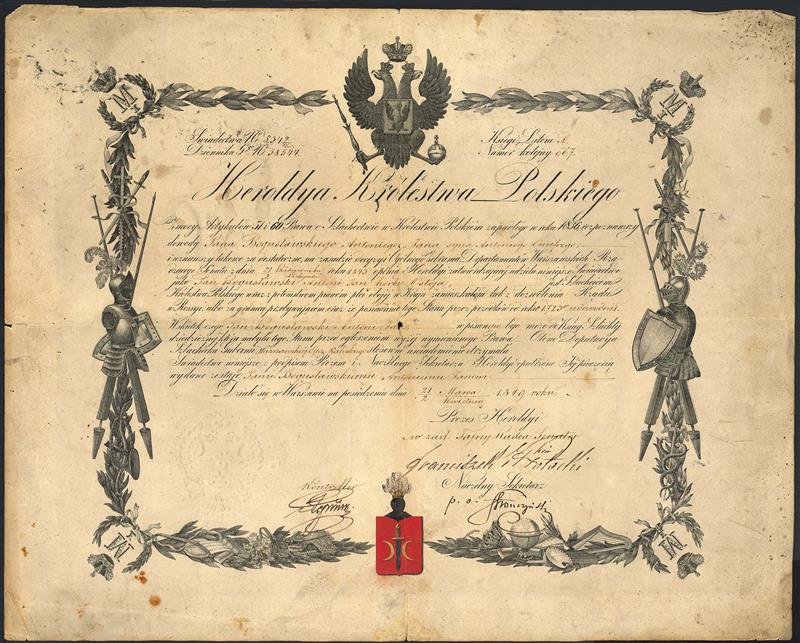 Świadectwa No 8542
Dziennika Gł. No 38544
Księgi Litera A
Numer kolejny 667
Heroldya Królestwa Polskiego
Z mocy Artykułów 51 i 60 Prawa o Szlachectwie w Królestwie Polskiem zapadłego w roku 1836, rozpoznawszy
dowody Pana Bogusławskiego Antoniego Jana syna Antoniego
i uznawszy takowe za dostateczne, na zasadzie decyzyi Ogólnego Zebrania Departamentów Warszawskich Rzą-
dzącego Senatu z dnia roku 1843 opinię Heroldyi zatwierdzającej udziela niniejsze Świadectwo
jako Pan Bogusławski Antoni Jan herbu Ostoja jest Szlachcicem
Królestwa Polskiego wraz z potomstwem prawem płci obojej w Kraju zamieszkałem lub z dozwolenia Rządu
w Rossyi, albo za granicą przebywającem oraz, że posiadanie tego Stanu przez przodków od roku 1725 udowodnił.
Wskutek czego Pan Bogusławski Antoni Jan wpisanym być może do Ksiąg Szlachty
dziedzicznej, która nabyła tego Stanu przed ogłoszeniem wyżej wymienionego Prawa. O tem Deputacya
Szlachecka Gubernii Warszawskiej stosowne zawiadomienie otrzymała
Świadectwo niniejsze z podpisem Prezesa i Naczelnego Sekretarza Heroldyi opatrzone Jej pieczęcią
wydane zostaje Panu Bogusławskiemu Antoniemu Janowi
Działo się w Warszawie na posiedzeniu dnia 21/2 Marca/Kwietnia 1849 roku.
Prezes Heroldyi
w zast. Tajny Radca Senator
Franciszek Potocki
Naczelny Sekretarz
p. o.
M
M
M
M